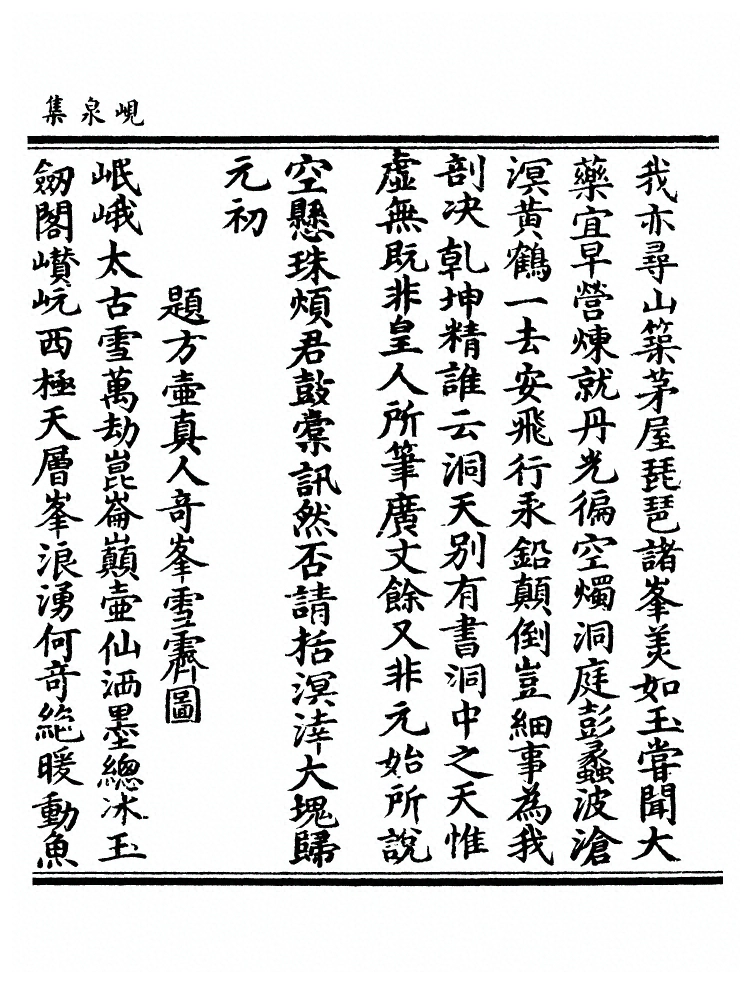 峴泉集
我亦尋山築茅屋琵琶諸峯美如玉甞聞大
藥宜早營煉就丹光徧空燭洞庭彭蠡波滄
溟黃鶴一去安飛行汞鉛顛倒豈細事為我
剖決乾坤精誰云洞天別有書洞中之天惟
虛無既非皇人所筆廣丈餘又非元始所說
空懸珠煩君鼓棠訊然否請括溟涬大塊歸
元初
題方壺真人奇峯雪霽圖
岷峨太古雪萬劫崑崙巔壺仙洒墨總冰玉
劔閣巑岏西極天層峯浪湧何奇絶暖動魚